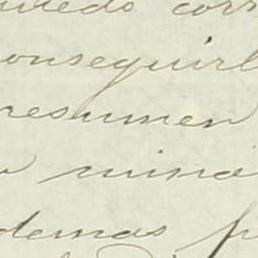 uedo corr
onseguirl
resumen
mina
demas p